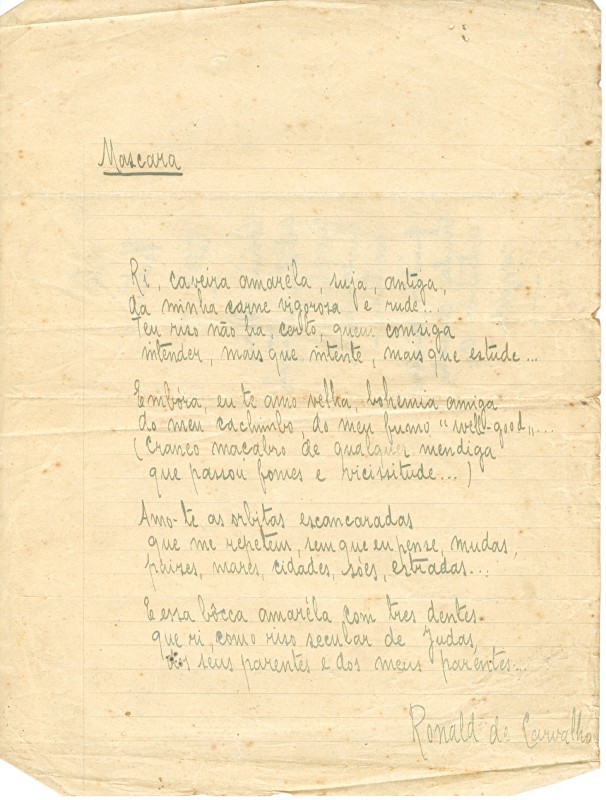 Mascara
Ri, caveira amaréla, suja, antiga,
da minha carne vigorosa e rude...
Teu riso não ha certo, quem consiga
intender, mais que intente, mais que estude...
Embóra, eu te amo velha, bohemia amiga
do meu cachimbo, do meu fumo "well-good"...
(Craneo macabro de qualquer mendiga
que passou fomes e vicissitude...)
Amo-te as orbitas escancaradas
que me repetem, sem que eu pense, mudas,
paizes, mares, cidades, sóes, estradas...
E essa bôcca amaréla com tres dentes
que ri, como riso secular de Judas,
dos seus parentes e dos meus parentes...
Ronald de Carvalho